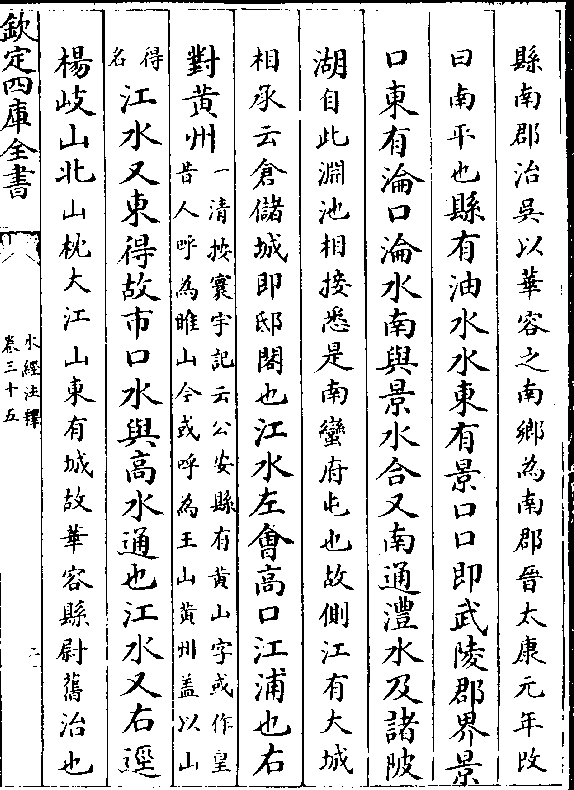 縣南郡治吳以華容之南鄉為南郡晉太康元年改
曰南平也縣有油水水東有景口口即武陵郡界景
口東有淪口淪水南與景水合又南通澧水及諸陂
湖自此淵池相接悉是南蠻府屯也故側江有大城
相承云倉儲城即邸閣也江水左會高口江浦也右
對黃州一清按寰宇記云公安縣有黃山字或作皇
昔人呼為睢山今或呼為王山黃州盖以山
得名江水又東得故市口水與高水通也江水又右逕
楊岐山北山枕大江山東有城故華容縣尉舊治也
欽定四庫全書
水經注釋
卷三十五
二